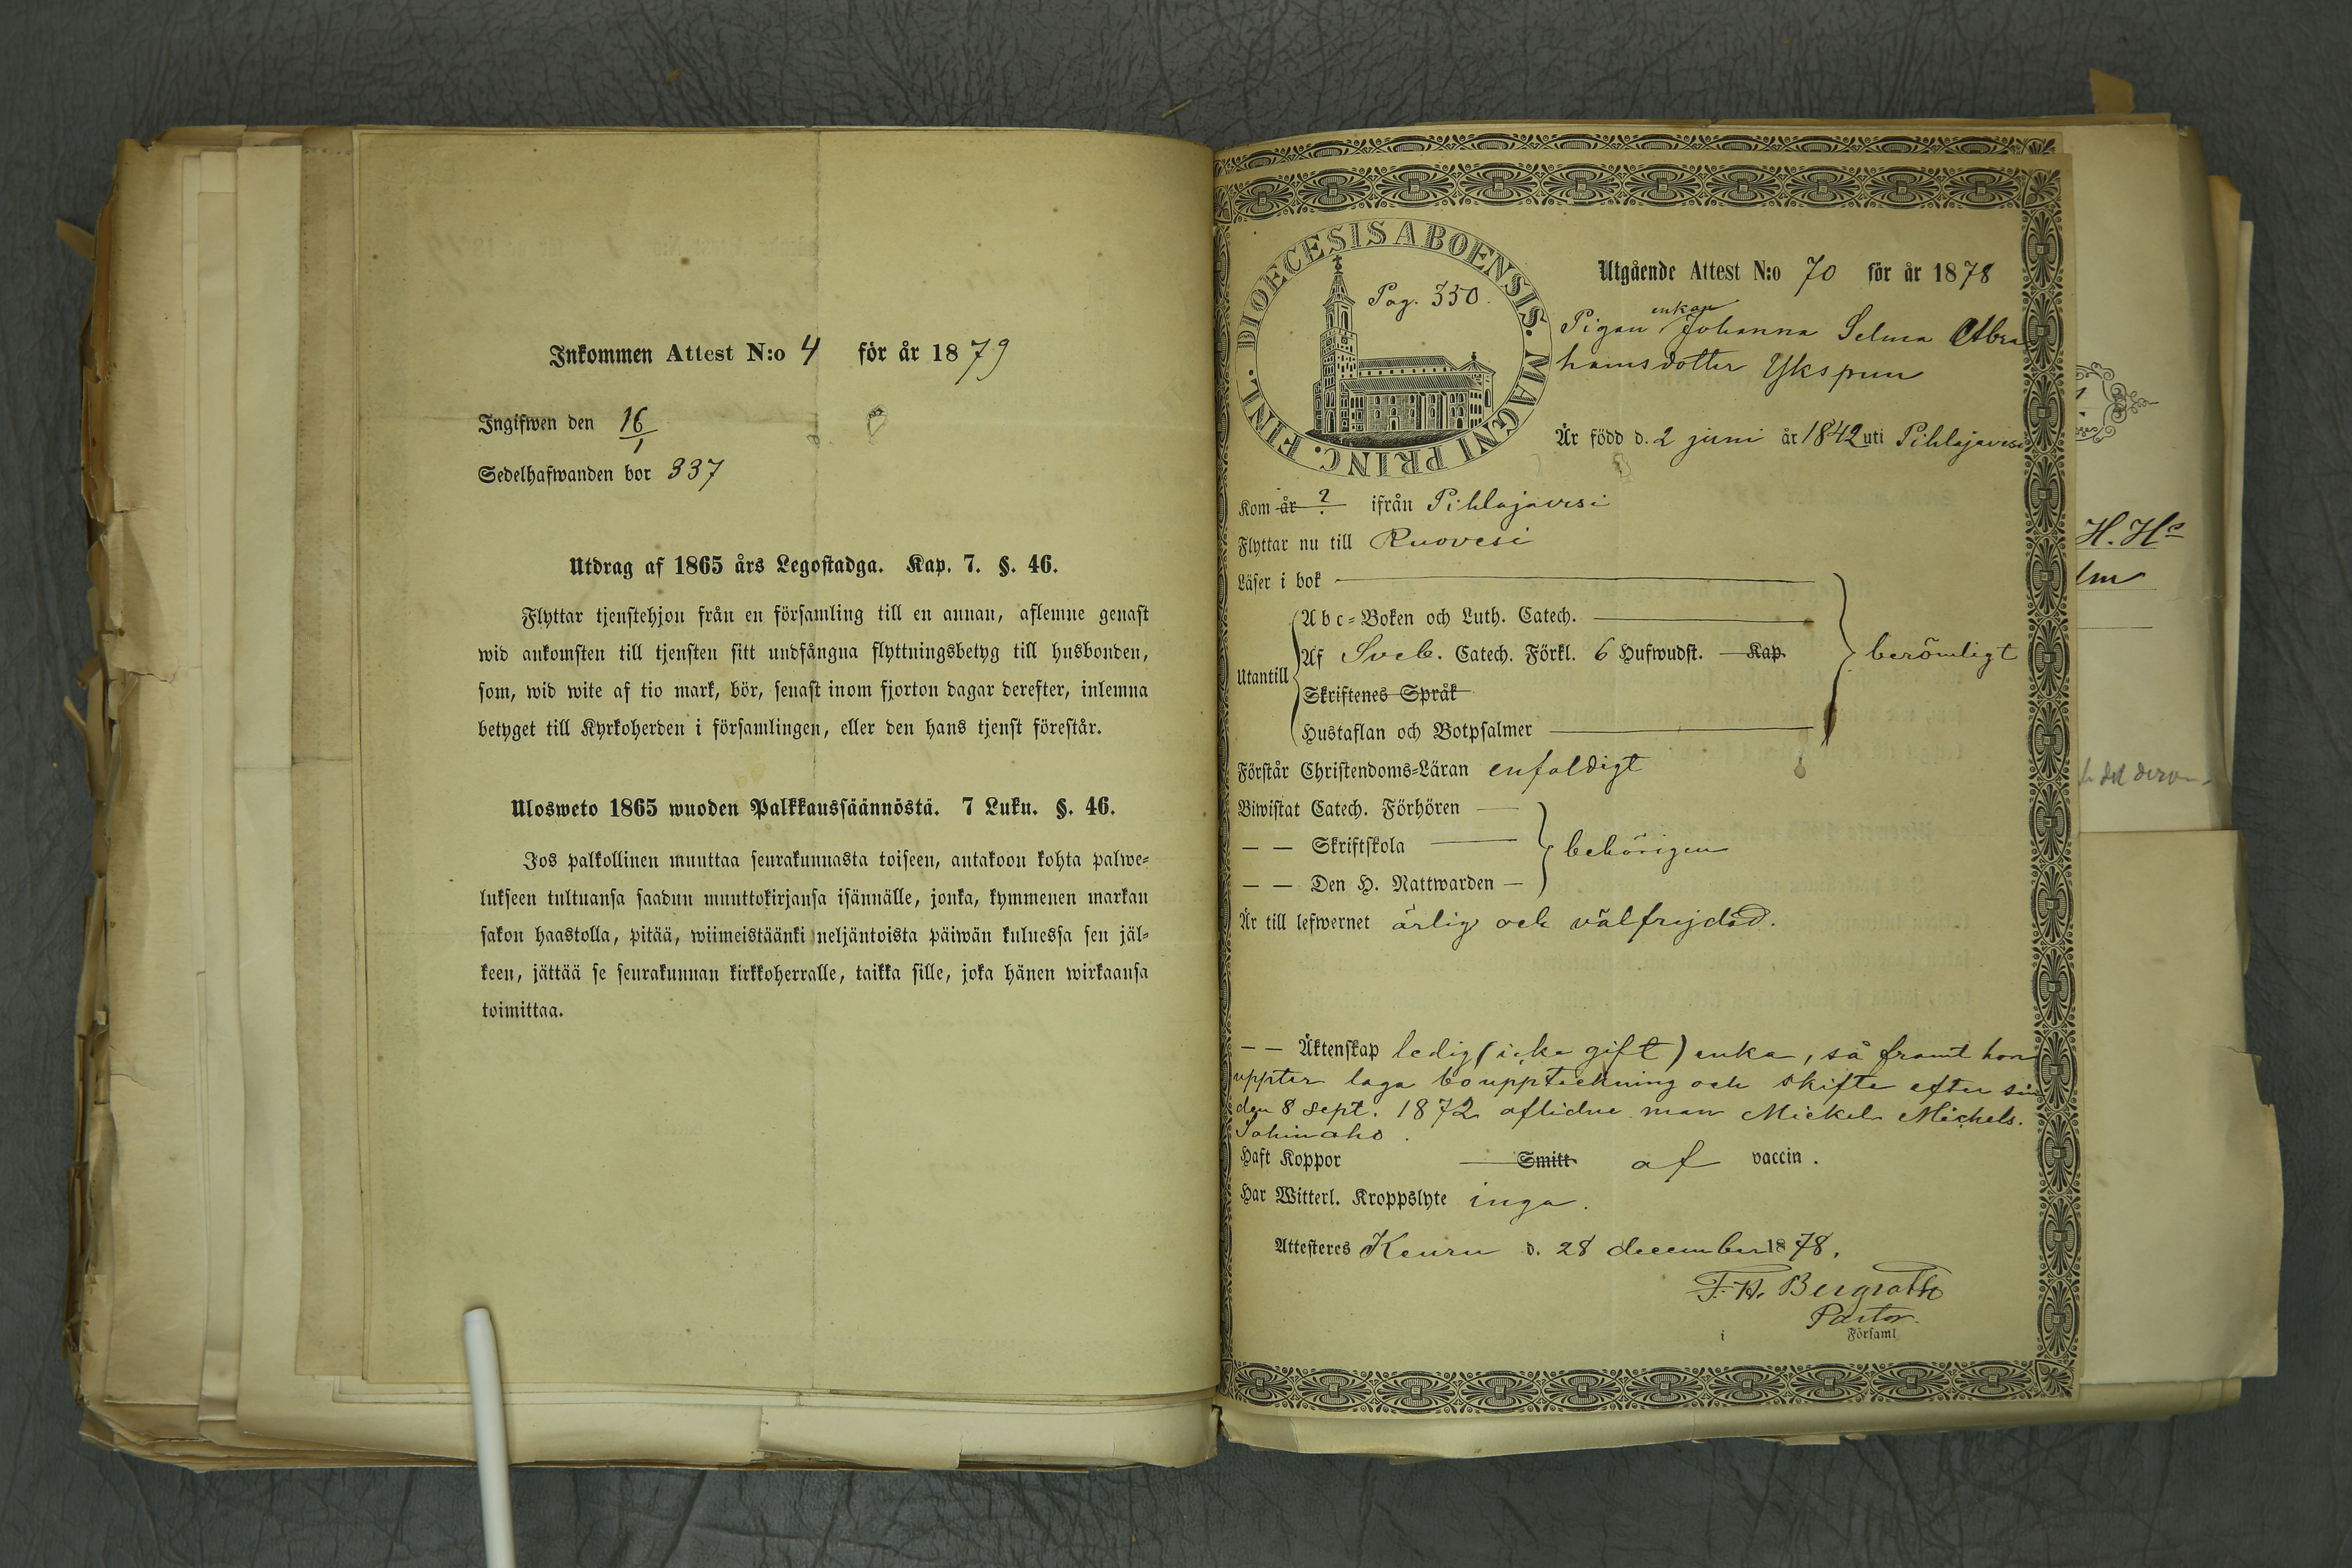 Inkommen Attest N:o 4 för år 1879
Ingifwen den 16/1
Sedelhafwanden bor 337
Utdrag af 1865 års Legostadga. Kap. 7. §. 46.
Flyttar tjenstehjon från en församling till en annan, aflemne genast
wid ankomsten till tjensten sitt undfångna flyttningsbetyg till husbonden,
som, wid wite af tio mark, bör, senast inom fjorton dagar derefter, inlemna
betyget till Kyrkoherden i församlingen, eller den hans tjenst förestår.
Ulosweto 1865 wuoden Palkkaussäännöstä. 7 Luku. §. 46.
Jos palkollinen muuttaa seurakunnasta toiseen, antakoon kohta palwe=
lukseen tultuansa saadun muuttokirjansa isännälle, jonka, kymmenen markan
sakon haastolla, pitää, wiimeistäänki neljäntoista päiwän kuluessa sen jäl=
keen, jättää se seurakunnan kirkkoherralle, taikka sille, joka hänen wirkaansa
toimittaa.
DIOECESIS ABOENSIS. MAGNI PRINC. FINL.
Pag. 350.
Utgående Attest N:o 70 för år 1878
enkan
Pigan Johanna Selma Abra
hamsdotter Ykspuu
Är född d. 2 juni år 1842 uti Pihlajavesi
Kom år ? ifrån Pihlajavesi
Flyttar nu till Ruovesi
Läser i bok
Abc=Boken och Luth. Catech.
Utantill Af Sveb. Catech. Förkl. 6 Hufwudst. Kap. berömligt
Skriftenes Språk
Hustaflan och Botpsalmer
Förstår Christendoms=Läran enfaldigt
Biwistat Catech. Förhören
— — Skriftskola behörigen
— — Den H. Nattwarden
Är till lefwernet ärlig och välfrejdad.
— — Äktenskap ledig (icke gift) enka, så framt hon
uppter laga bouppteckning och skifte efter sin
den 8 sept. 1872 aflidne man Mickel Michels.
Sahinaho.
Haft Koppor Smitt af vaccin.
Har Witterl. Kroppslyte inga.
Attesteres Keuru d. 28 december 1878.
F. H. Bergroth
Pastor.
i Församl
H. H